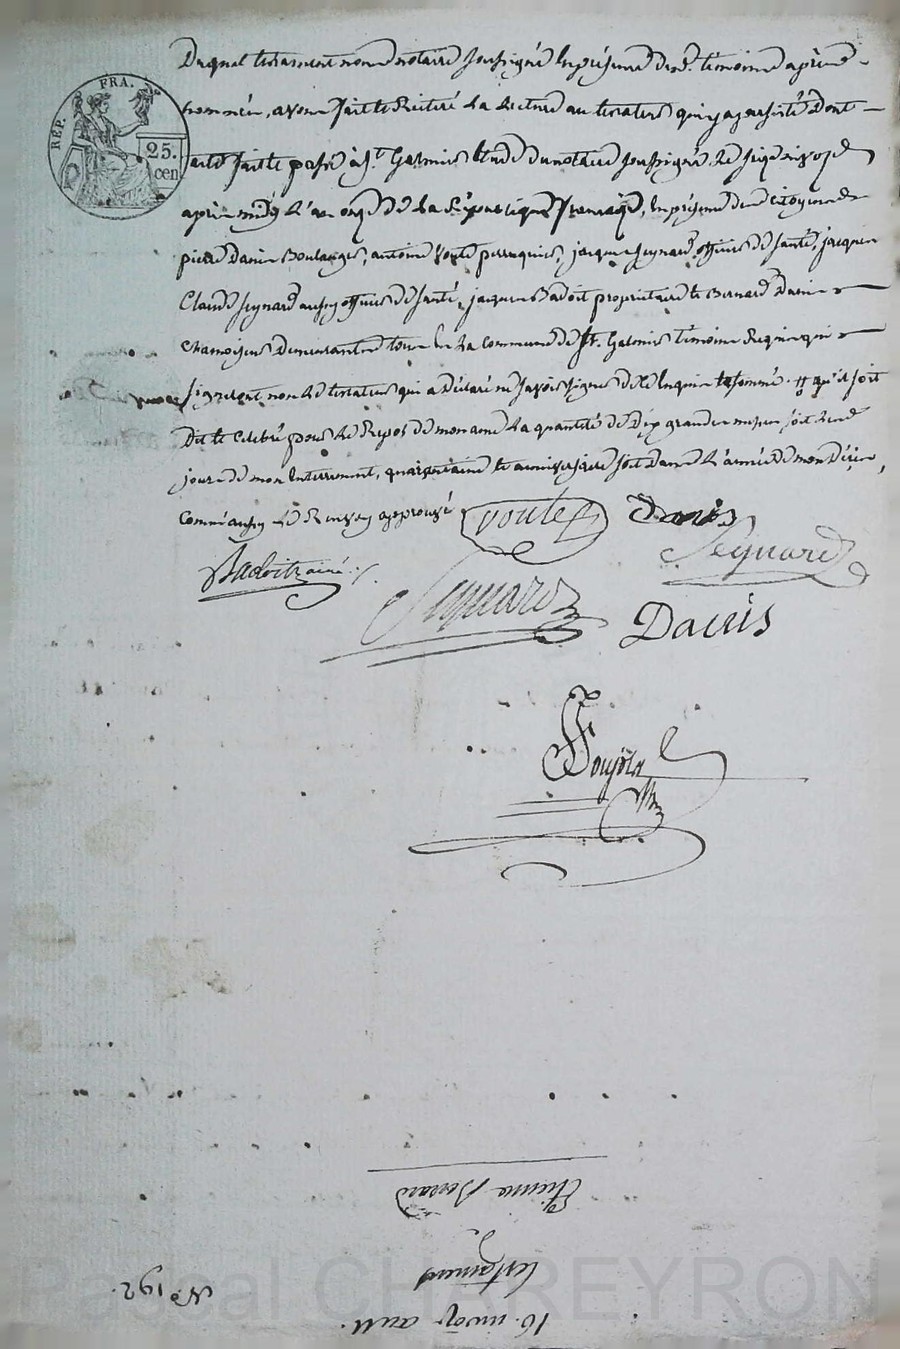 REP. FRA.
25.
cen
Duquel testament nous notaire soussigné en présence des d. témoins après
nommés, avons fait et réitéré la lecture au testateur qui y a persisté Dont
acte fait et passé à St. Galmier étude du notaire soussigné le seize nivose
après midy l'an onze de la République française, en présence des citoyens
pierre Danis Boulanger, antoine Voute perruquier, jacques Seynard officier de santé, jacques
Claude Seynard aussy officier de santé, jacques Badoit propriétaire et Bernard Danis
chamoiseur demeurants tous en la commune de St. Galmier témoins requis qui
signeront non le testateur qui a déclaré ne savoir signer de ce enquis et sommé. # qu'il soit
Dit et célébré pour le repos de mon ame la quantité de dix grandes messes soit le
jour de mon enterrement, quarantaine et anniversaire soit dans l'année de mon décès,
comme aussy le renvoy approuvé
Voute Danis
Badoit ainé Seynard
Seynard
Danis
16. nivose an 11.
testament
Etienne
N° 192.
Pascal CHAREYRON